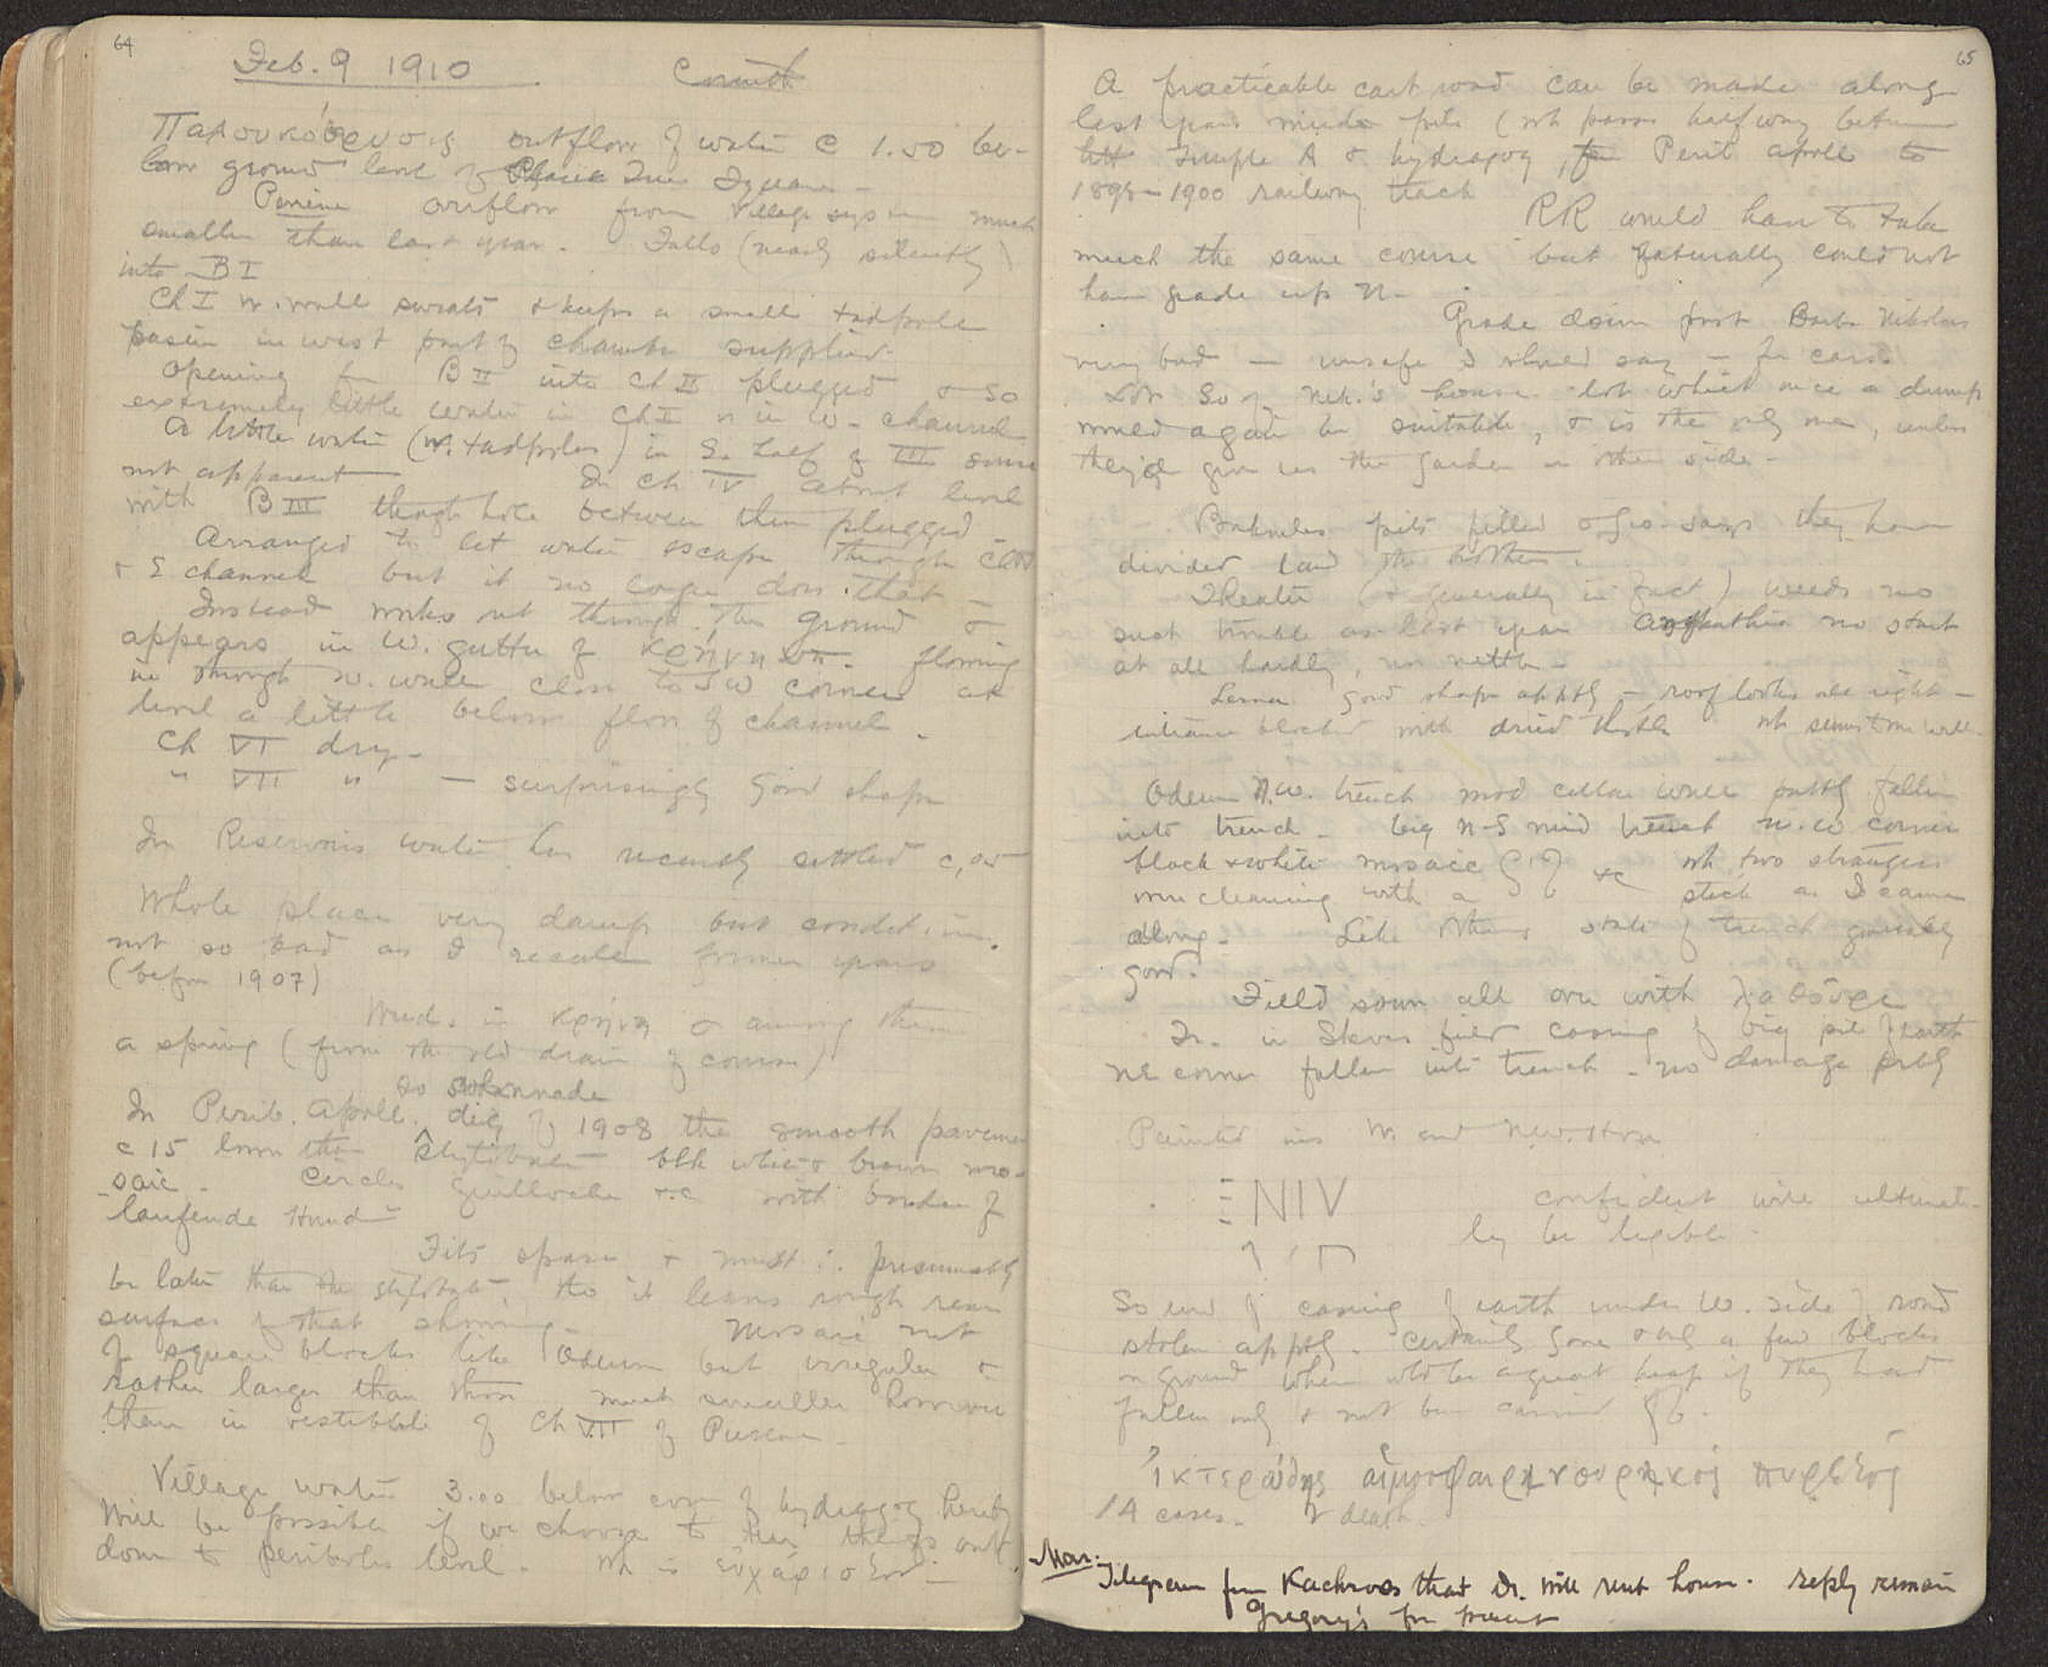 64
Feb. 9 1910 Corinth
outflow of water c 1.50 be-
low ground level of Plane Tree Square -
Peirene overflow from village system much
smaller than last year. Falls (nearly silently)
into B I
Ch I w. wall sweats & keeps a small tadpole
basin in west part of chamber supplied.
Opening fr B II into Ch II plugged & so
extremely little water in Ch II & in W. channel
A little water (w. tadpoles) in S. half of III source
not apparent In Ch IV about level
with B III though hole between them plugged
Arranged to let water escape through
& S channel but it no longer does that -
Instead works out through the ground &
appears in W. gutter of κρήνη flowing
in through w. wall close to SW corner at
level a little below floor of channel.
Ch VI dry -
" VII " - surprisingly good shape
In Reservoirs water has recently settled
Whole place very damp but condition
not so bad as I recall former years
(before 1907)
Mud in κρήνη & among them
a spring (from the old drain of course)
so colonnade
In Perib. Apoll. dig of 1908 the smooth pavemen
c 15 lower than Stylobate blk white & brown mo-
saic. Circles guilloche &c with border of
laufende Hund
Fits space & must ∴ presumably
be later than the stylobate, tho it leaves rough rear
surface of that showing - Mosaic not
of square blocks like Odeum but irregular &
rather larger than those much smaller however
than in vestibule of Ch VII of Pirene -
Village water 3.00 below cover of hydragog hereby
Will be possible if we choose to turn things out
down to peribolos level. Wh is
65
A practicable cart road can be made along
last years pits (wh pass halfway between
temple A & hydragog, fr Perib Apoll to
1898-1900 railway track
RR would have to take
much the same course but naturally could not
have grade up N -
Grade down past Barba Nikolas
very bad - unsafe I should say - for cars.
Lot So of Nik.'s house lot which once a dump
would again be suitable, & is the only one, unless
they'd give us the garden on other side -
pits filled & Geo. says they have
divided land the brothers.
Theater (& generally in fact) weeds no
such trouble as last year no start
at all hardly, no nettle -
Lerna good shape apptly - roof looks all right -
entrance blocked with dried thistle wh
Odeum N.W. trench mod cellar wall partly fallen
into trench - big N-S mid trench N.W corner
black & white mosaic &c wh two strangers
were cleaning with a stick as I came
along - Like others state of trench generally
good.
Field sown all over with
Tr. in field casing of big pile of earth
NE corner fallen into trench - no damage prbly
Painted ins
ΞNIV confident will ultimate-
ly be legible -
So end of casing of earth under W. side of road
stolen apptly - certainly gone & only a few blocks
on ground where wld be a great heap if they had
fallen only & not been carried off -
πυρετός
14 cases. 1 death.
Mar.
Telegram from Kachros that Dr. will rent house. reply remain
Gregory's for present